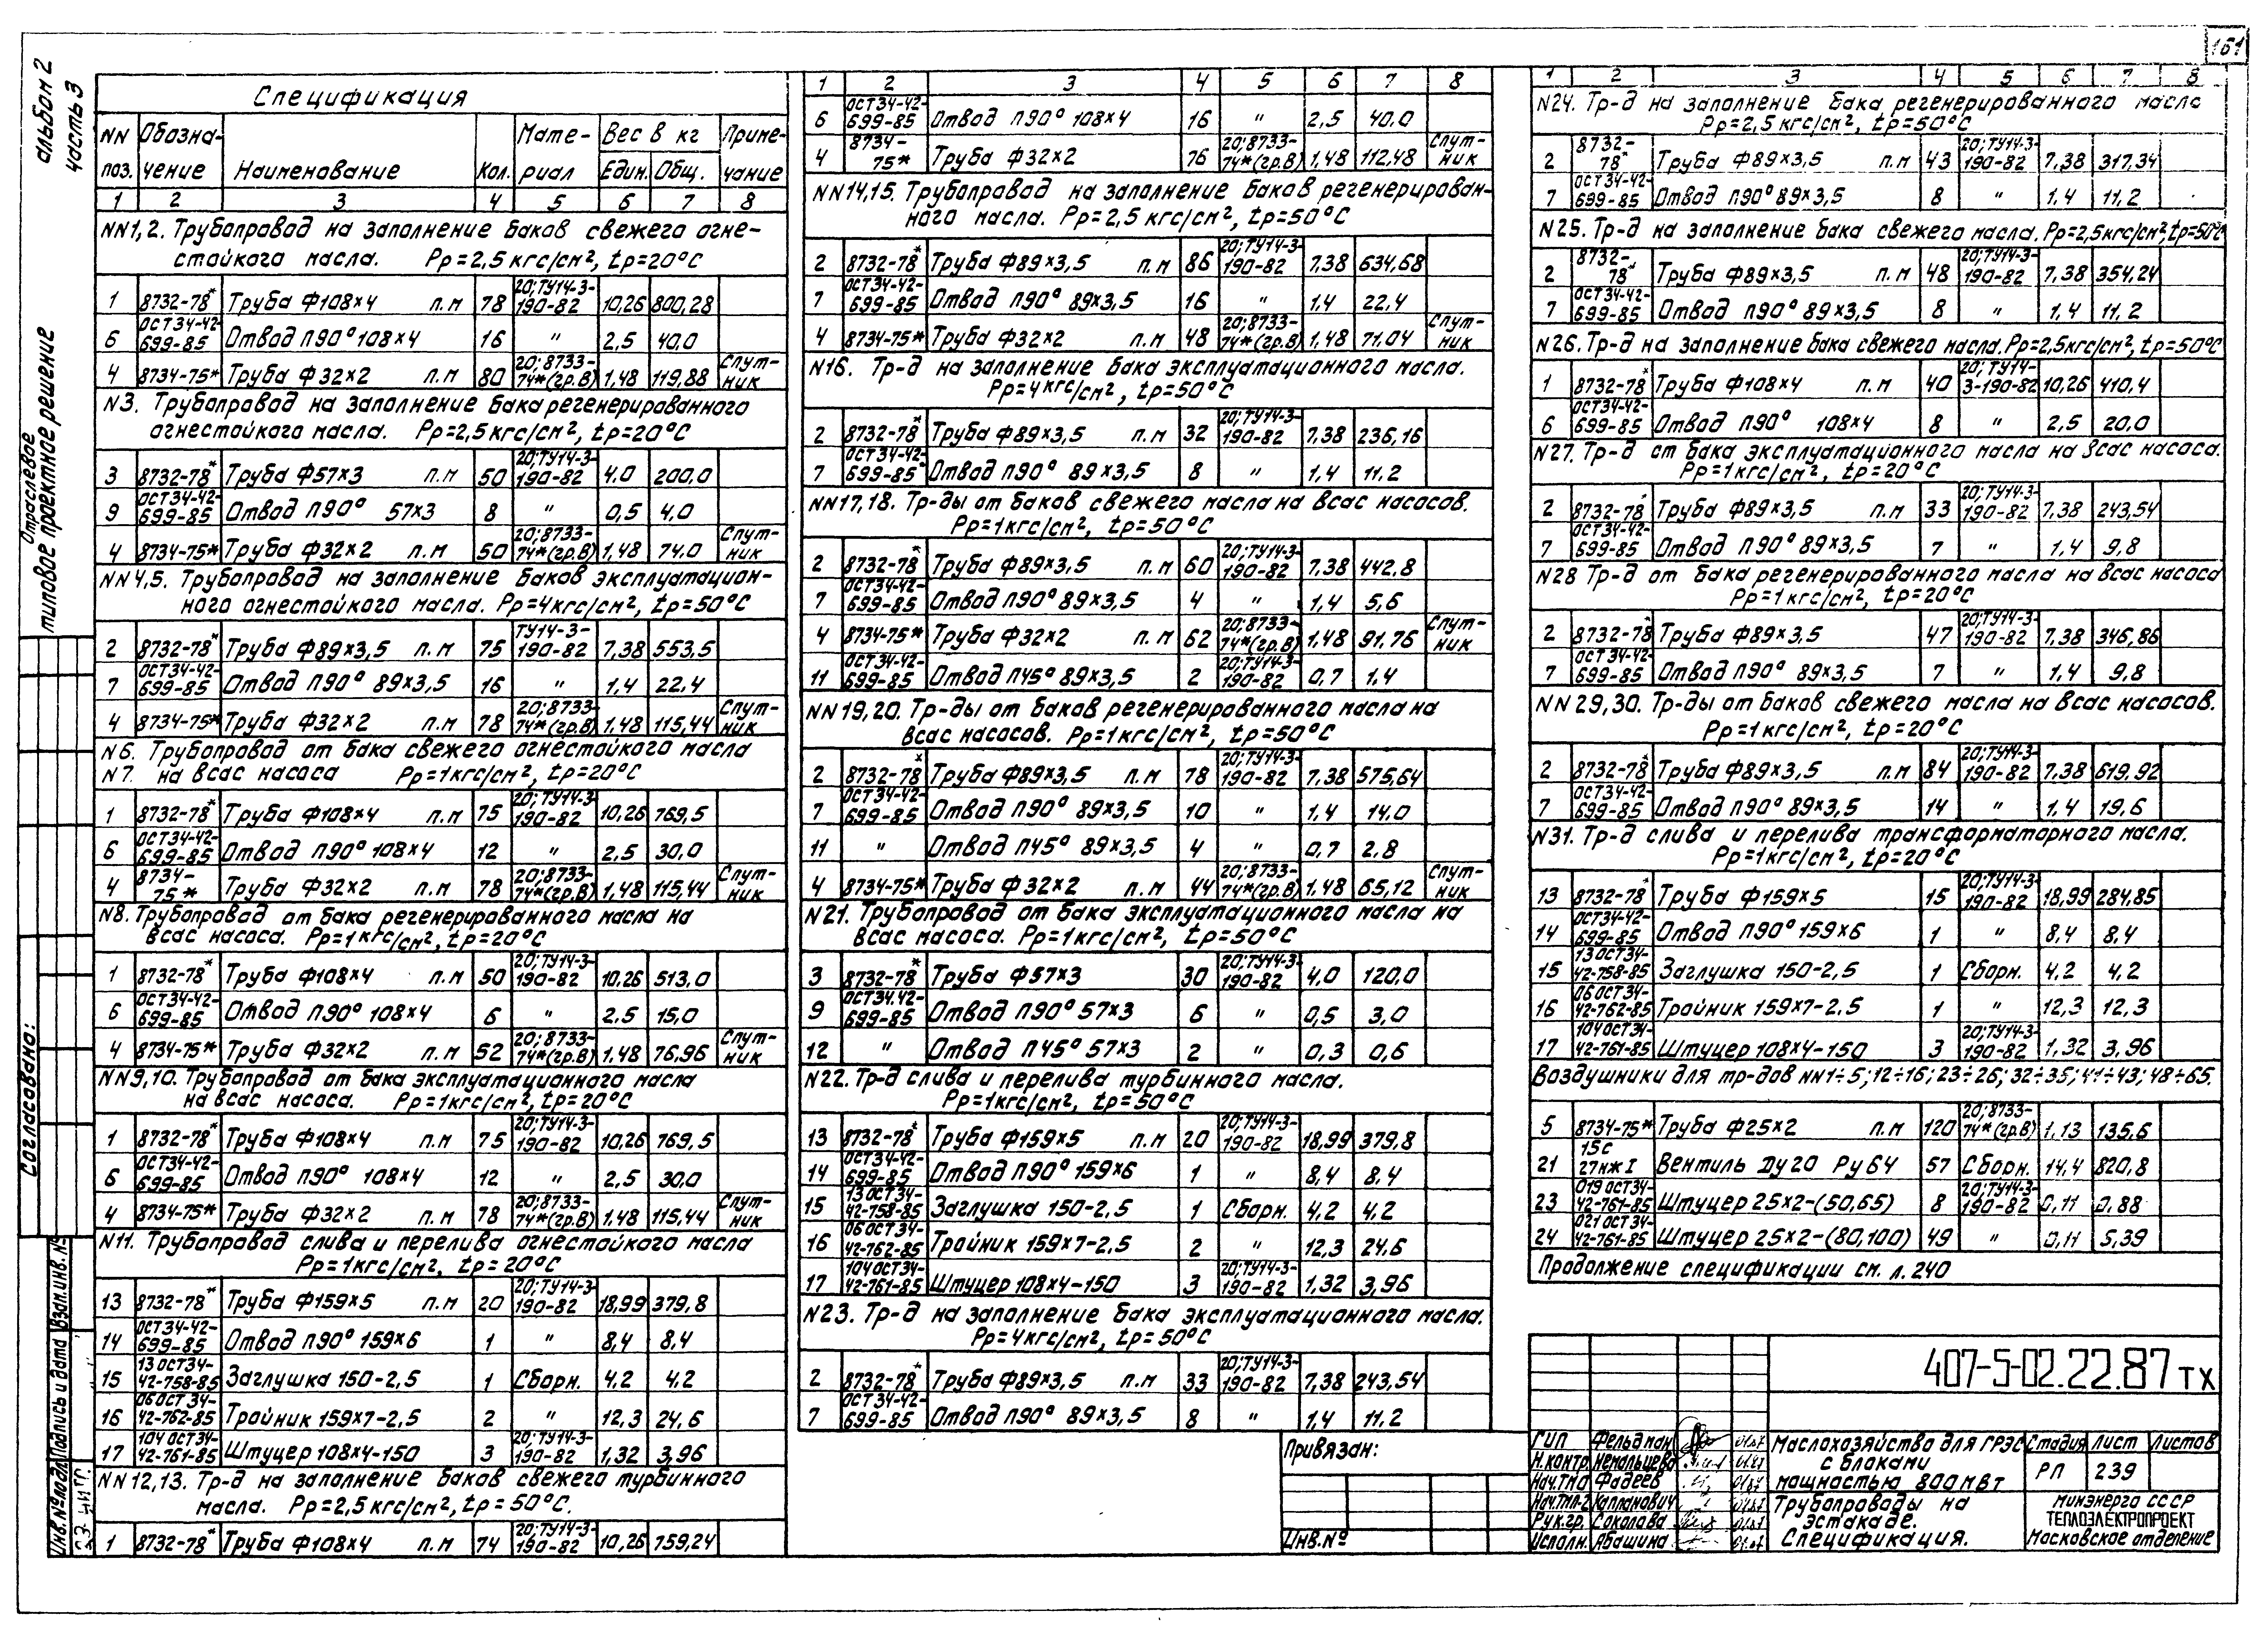 161
альбом 2
часть 3
Отраслевое
типовое проектное решение
Согласовано:
Взам.инв.№
Подпись и дата
Инв.№подл.
Спецификация
NN поз. Обозначение Наименование Кол. Материал Вес в кг Един. Общ. Примечание
1 2 3 4 5 6 7 8
NN1,2. Трубопровод на заполнение баков свежего огне-
стойкого масла. Рр=2,5кгс/см², tр=20°С
1 8732-78* Труба ф108×4 п.м 78 20;ТУ14-3-190-82 10,26 800,28
6 ОСТ34-42-699-85 Отвод П90° 108×4 16 " 2,5 40,0
4 8734-75* Труба ф32×2 п.м 80 20;8733-74*(гр.В) 1,48 119,88 Спут-ник
N3. Трубопровод на заполнение бака регенерированного
огнестойкого масла. Рр=2,5кгс/см², tр=20°С
3 8732-78* Труба ф57×3 п.м 50 20;ТУ14-3-190-82 4,0 200,0
9 ОСТ34-42-699-85 Отвод П90° 57×3 8 " 0,5 4,0
4 8734-75* Труба ф32×2 п.м 50 20;8733-74*(гр.В) 1,48 74,0 Спут-ник
NN4,5. Трубопровод на заполнение баков эксплуатацион-
ного огнестойкого масла. Рр=4кгс/см², tр=50°С
2 8732-78* Труба ф89×3,5 п.м 75 ТУ14-3-190-82 7,38 553,5
7 ОСТ34-42-699-85 Отвод П90° 89×3,5 16 " 1,4 22,4
4 8734-75* Труба ф32×2 п.м 78 20;8733-74*(гр.В) 1,48 115,44 Спут-ник
N6. Трубопровод от бака свежего огнестойкого масла
N7. на всас насоса Рр=1кгс/см², tр=20°С
1 8732-78* Труба ф108×4 п.м 75 20;ТУ14-3-190-82 10,26 769,5
6 ОСТ34-42-699-85 Отвод П90° 108×4 12 " 2,5 30,0
4 8734-75* Труба ф32×2 п.м 78 20;8733-74*(гр.В) 1,48 115,44 Спут-ник
N8. Трубопровод от бака регенерированного масла на
всас насоса. Рр=1кгс/см², tр=20°С
1 8732-78* Труба ф108×4 п.м 50 20;ТУ14-3-190-82 10,26 513,0
6 ОСТ34-42-699-85 Отвод П90° 108×4 6 " 2,5 15,0
4 8734-75* Труба ф32×2 п.м 52 20;8733-74*(гр.В) 1,48 76,96 Спут-ник
NN9,10. Трубопровод от бака эксплуатационного масла
на всас насоса. Рр=1кгс/см², tр=20°С
1 8732-78* Труба ф108×4 п.м 75 20;ТУ14-3-190-82 10,26 769,5
6 ОСТ34-42-699-85 Отвод П90° 108×4 12 " 2,5 30,0
4 8734-75* Труба ф32×2 п.м 78 20;8733-74*(гр.В) 1,48 115,44 Спут-ник
N11. Трубопровод слива и перелива огнестойкого масла
Рр=1кгс/см², tр=20°С
13 8732-78* Труба ф159×5 п.м 20 20;ТУ14-3-190-82 18,99 379,8
14 ОСТ34-42-699-85 Отвод П90° 159×6 1 " 8,4 8,4
15 13 ОСТ34-42-758-85 Заглушка 150-2,5 1 Сборн. 4,2 4,2
16 06 ОСТ34-42-762-85 Тройник 159×7-2,5 2 " 12,3 24,6
17 104 ОСТ34-42-761-85 Штуцер 108×4-150 3 20;ТУ14-3-190-82 1,32 3,96
NN12,13. Тр-д на заполнение баков свежего турбинного
масла. Рр=2,5кгс/см², tр=50°С.
1 8732-78* Труба ф108×4 п.м 74 20;ТУ14-3-190-82 10,26 759,24
1 2 3 4 5 6 7 8
6 ОСТ34-42-699-85 Отвод П90° 108×4 16 " 2,5 40,0
4 8734-75* Труба ф32×2 76 20;8733-74*(гр.В) 1,48 112,48 Спут-ник
NN14,15. Трубопровод на заполнение баков регенерирован-
ного масла. Рр=2,5кгс/см², tр=50°С
2 8732-78* Труба ф89×3,5 п.м 86 20;ТУ14-3-190-82 7,38 634,68
7 ОСТ34-42-699-85 Отвод П90° 89×3,5 16 " 1,4 22,4
4 8734-75* Труба ф32×2 п.м 48 20;8733-74*(гр.В) 1,48 71,04 Спут-ник
N16. Тр-д на заполнение бака эксплуатационного масла.
Рр=4кгс/см², tр=50°С
2 8732-78* Труба ф89×3,5 п.м 32 20;ТУ14-3-190-82 7,38 236,16
7 ОСТ34-42-699-85 Отвод П90° 89×3,5 8 " 1,4 11,2
NN17,18. Тр-ды от баков свежего масла на всас насосов.
Рр=1кгс/см², tр=50°С
2 8732-78* Труба ф89×3,5 п.м 60 20;ТУ14-3-190-82 7,38 442,8
7 ОСТ34-42-699-85 Отвод П90° 89×3,5 4 " 1,4 5,6
4 8734-75* Труба ф32×2 п.м 62 20;8733-74*(гр.В) 1,48 91,76 Спут-ник
11 ОСТ34-42-699-85 Отвод П45° 89×3,5 2 20;ТУ14-3-190-82 0,7 1,4
NN19,20. Тр-ды от баков регенерированного масла на
всас насосов. Рр=1кгс/см², tр=50°С
2 8732-78* Труба ф89×3,5 п.м 78 20;ТУ14-3-190-82 7,38 575,64
7 ОСТ34-42-699-85 Отвод П90° 89×3,5 10 " 1,4 14,0
11 " Отвод П45° 89×3,5 4 " 0,7 2,8
4 8734-75* Труба ф32×2 п.м 44 20;8733-74*(гр.В) 1,48 65,12 Спут-ник
N21. Трубопровод от бака эксплуатационного масла на
всас насоса. Рр=1кгс/см², tр=50°С
3 8732-78* Труба ф57×3 30 20;ТУ14-3-190-82 4,0 120,0
9 ОСТ34.42-699-85 Отвод П90° 57×3 6 " 0,5 3,0
12 " Отвод П45° 57×3 2 " 0,3 0,6
N22. Тр-д слива и перелива турбинного масла.
Рр=1кгс/см², tр=50°С
13 8732-78* Труба ф159×5 п.м 20 20;ТУ14-3-190-82 18,99 379,8
14 ОСТ34-42-699-85 Отвод П90° 159×6 1 " 8,4 8,4
15 13 ОСТ34-42-758-85 Заглушка 150-2,5 1 Сборн. 4,2 4,2
16 06 ОСТ34-42-762-85 Тройник 159×7-2,5 2 " 12,3 24,6
17 104 ОСТ34-42-761-85 Штуцер 108×4-150 3 20;ТУ14-3-190-82 1,32 3,96
N23. Тр-д на заполнение бака эксплуатационного масла.
Рр=4кгс/см², tр=50°С
2 8732-78* Труба ф89×3,5 п.м 33 20;ТУ14-3-190-82 7,38 243,54
7 ОСТ34-42-699-85 Отвод П90° 89×3,5 8 " 1,4 11,2
Привязан:
Инв.№
1 2 3 4 5 6 7 8
N24. Тр-д на заполнение бака регенерированного масла
Рр=2,5кгс/см², tр=50°С
2 8732-78* Труба ф89×3,5 п.м 43 20;ТУ14-3-190-82 7,38 317,34
7 ОСТ34-42-699-85 Отвод П90° 89×3,5 8 " 1,4 11,2
N25. Тр-д на заполнение бака свежего масла. Рр=2,5кгс/см², tр=50°С
2 8732-78* Труба ф89×3,5 п.м 48 20;ТУ14-3-190-82 7,38 354,24
7 ОСТ34-42-699-85 Отвод П90° 89×3,5 8 " 1,4 11,2
N26. Тр-д на заполнение бака свежего масла. Рр=2,5кгс/см², tр=50°С
1 8732-78* Труба ф108×4 п.м 40 20;ТУ14-3-190-82 10,26 410,4
6 ОСТ34-42-699-85 Отвод П90° 108×4 8 " 2,5 20,0
N27. Тр-д от бака эксплуатационного масла на всас насоса.
Рр=1кгс/см², tр=20°С
2 8732-78* Труба ф89×3,5 п.м 33 20;ТУ14-3-190-82 7,38 243,54
7 ОСТ34-42-699-85 Отвод П90° 89×3,5 7 " 1,4 9,8
N28 Тр-д от бака регенерированного масла на всас насоса
Рр=1кгс/см², tр=20°С
2 8732-78* Труба ф89×3,5 47 20;ТУ14-3-190-82 7,38 346,86
7 ОСТ34-42-699-85 Отвод П90° 89×3,5 7 " 1,4 9,8
NN29,30. Тр-ды от баков свежего масла на всас насосов.
Рр=1кгс/см², tр=20°С
2 8732-78* Труба ф89×3,5 п.м 84 20;ТУ14-3-190-82 7,38 619,92
7 ОСТ34-42-699-85 Отвод П90° 89×3,5 14 " 1,4 19,6
N31. Тр-д слива и перелива трансформаторного масла.
Рр=1кгс/см², tр=20°С
13 8732-78* Труба ф159×5 15 20;ТУ14-3-190-82 18,99 284,85
14 ОСТ34-42-699-85 Отвод П90° 159×6 1 " 8,4 8,4
15 13 ОСТ34-42-758-85 Заглушка 150-2,5 1 Сборн. 4,2 4,2
16 06 ОСТ34-42-762-85 Тройник 159×7-2,5 1 " 12,3 12,3
17 104 ОСТ34-42-761-85 Штуцер 108×4-150 3 20;ТУ14-3-190-82 1,32 3,96
Воздушники для тр-дов NN1÷5; 12÷16; 23÷26; 32÷35; 41÷43; 48÷65.
5 8734-75* Труба ф25×2 п.м 120 20;8733-74*(гр.В) 1,13 135,6
21 15с 27нж I Вентиль Ду20 Ру64 57 Сборн. 14,4 820,8
23 019 ОСТ34-42-761-85 Штуцер 25×2-(50,65) 8 20;ТУ14-3-190-82 0,11 0,88
24 021 ОСТ34-42-761-85 Штуцер 25×2-(80,100) 49 " 0,11 5,39
Продолжение спецификации см. л. 240
407-5-02.22.87 ТХ
ГИП Фельдман 01.87
Н.контр. Немальцева 01.87
Нач.ТМО Фадеев 01.87
Нач.ТМЛ-2 Капланович 01.87
Рук.гр. Соколова 01.87
Исполн. Абашина 01.87
Маслохозяйство для ГРЭС
с блоками
мощностью 800МВт
Стадия Лист Листов
РП 239
Трубопроводы на
эстакаде.
Спецификация.
Минэнерго СССР
ТЕПЛОЭЛЕКТРОПРОЕКТ
Московское отделение